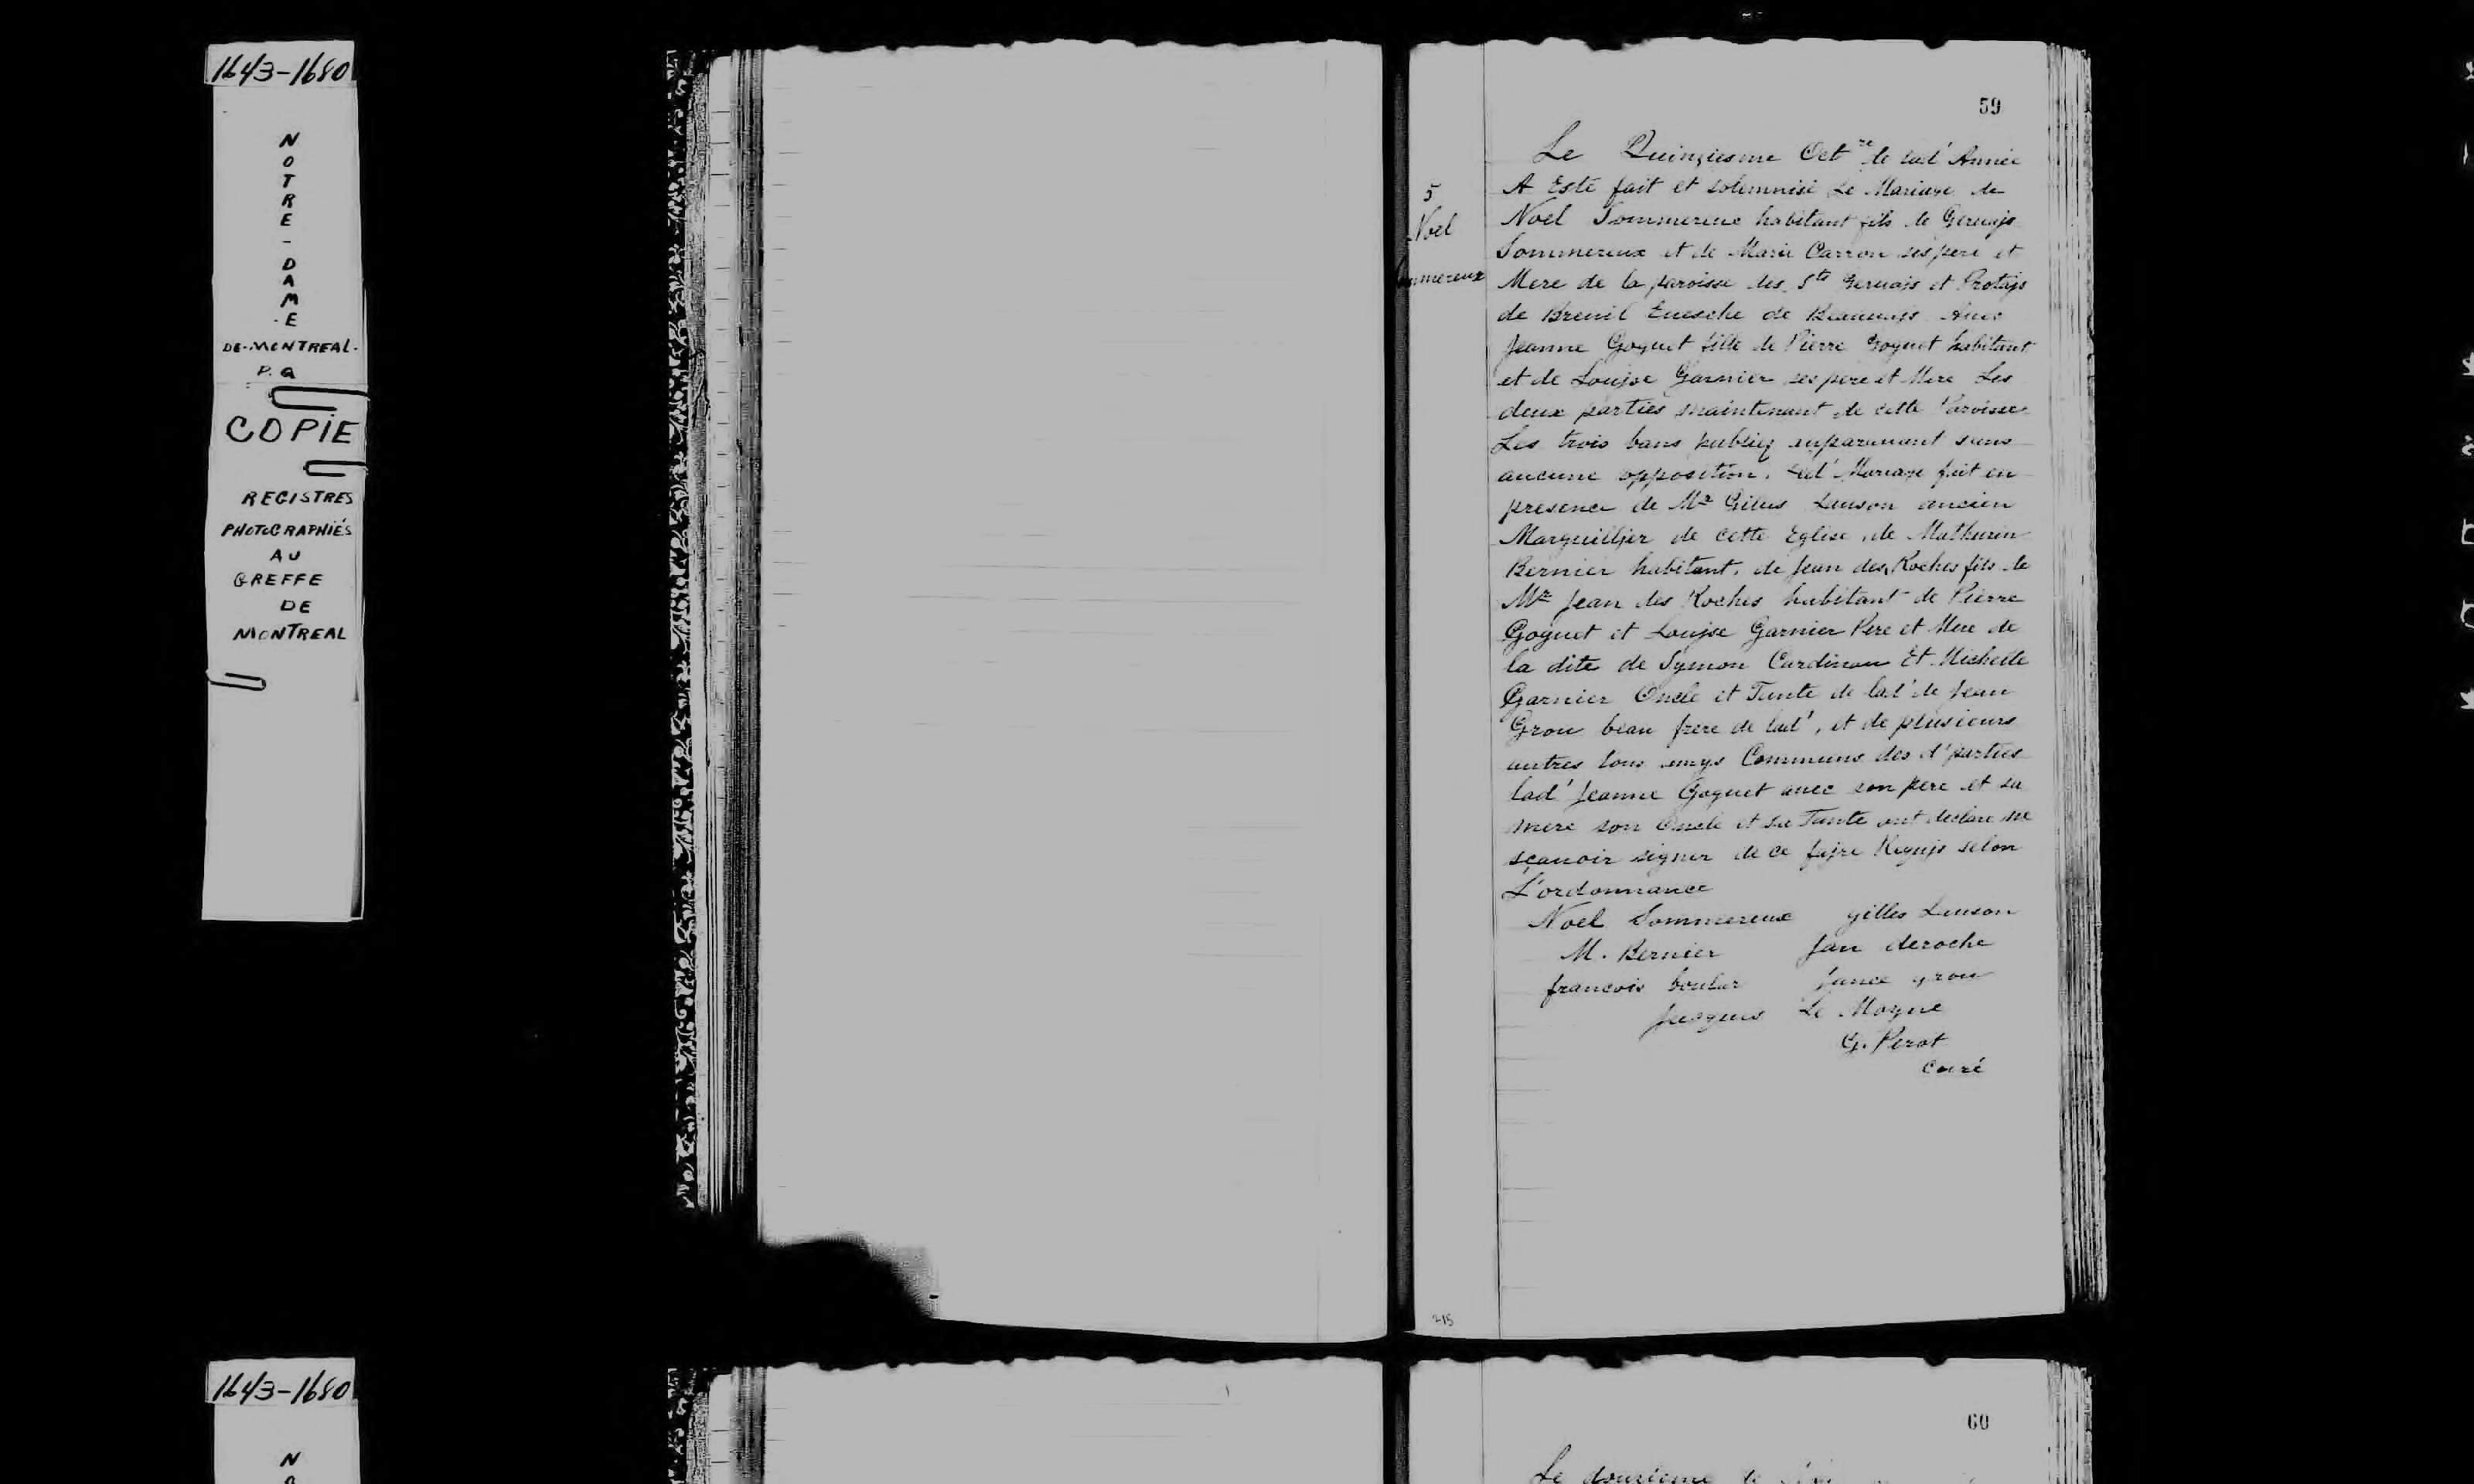 1643-1680
N
O
T
R
E
-
D
A
M
E
DE-MONTREAL-
P.Q
COPIE
REGISTRES
PHOTOGRAPHIÉS
AU
GREFFE
DE
MONTREAL
59
5
Noel
ommereux
Le Quinziesme Oct.re de lad' Année
A Esté fait et solemnisé Le Mariage de
Noel Sommereux habitant fils de Gervajs
Sommereux et de Marie Carron ses pere et
Mere de la paroisse des Sts Gervais et Protajs
de Breuil Euesche de Beauuajs Auec
Jeanne Goguet fille de Pierre Goguet habitant
et de Loujse Garnier ses pere et Mere Les
deux parties maintenant de cette Paroisse
Les trois bans publiez auparauant sans
aucune opposition. Led' Mariage fait en
presence de Mr Gilles Lauson ancien
Marguilljer de cette Eglise, de Mathurin
Bernier habitant, de Jean des Roches fils de
Mr Jean des Roches habitant de Pierre
Goguet et Loujse Garnier Pere et Mere de
la dite de Symon Cardinau Et Michelle
Garnier Oncle et Tante de lad' de Jean
Grou beau frere de lad', et de plusieurs
autres tous amys Communs des d' parties
lad' Jeanne Goguet auec son pere et sa
mere son Oncle et sa Tante ont declaré ne
sçauoir signer de ce fajre Requjs selon
L'ordonnance
Noel Sommereux gilles Lauson
M. Bernier Jan deroche
francois boulur grou
Jacques Le Moyne
G. Perot
curé
215
1643-1680
N
O
60
Le douziesme